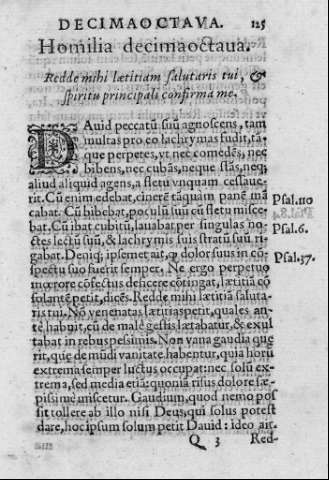 DECIMAOCTAVA. 125
Homilia decimaoctaua.
Redde mihi lætitiam salutaris tui, &
spiritu principali confirma me.
DAuid peccatũ suũ agnoscens, tam
multas pro eo lachrymas fudit, tã-
que perpetes, vt nec comedẽs, nec
bibens, nec cubãs, neque stãs, neq;
aliud aliquid agens, a fletu vnquam cessaue-
rit. Cũ enim edebat, cinerẽ tãquam panẽ mã
cabat. Cũ bibebat, poculũ suũ cũ fletu misce- Psal.110
bat. Cũ ibat cubitũ, lauabat per singulas no-
ctes lectũ suũ, & lachrymis suis stratũ suũ ri- Psal.6.
gabat. Deniq; ipsemet ait, q dolor suus in cõ-
spectu suo fuerit semper. Ne ergo perpetuo Psal.37.
mœrore cõfectus deficere cõtingat, lætitiã cõ
solantẽ petit, dicẽs. Redde mihi lætitiã saluta-
ris tui. Nõ venenatas lætitias petit, quales an-
te habuit, cũ de malè gestis lætabatur, & exul
tabat in rebus pessimis. Non vana gaudia que
rit, quę de mũdi vanitate habentur, quia horũ
extrema semper luctus occupat: nec solũ ex-
trema, sed media etiã: quoniã risus dolore sæ-
pissimè miscetur. Gaudium, quod nemo pos
sit tollere ab illo nisi Deus, qui solus potest
dare, hoc ipsum solum petit Dauid: ideo ait.
Q 3 Red-